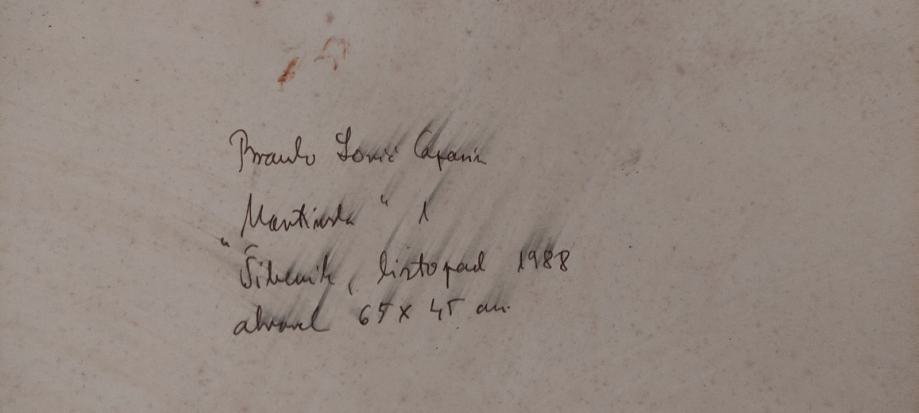 Branko Lovrić Caparin
"Mantinela" 1
Šibenik, listopad 1988
akvarel 65 x 45 cm